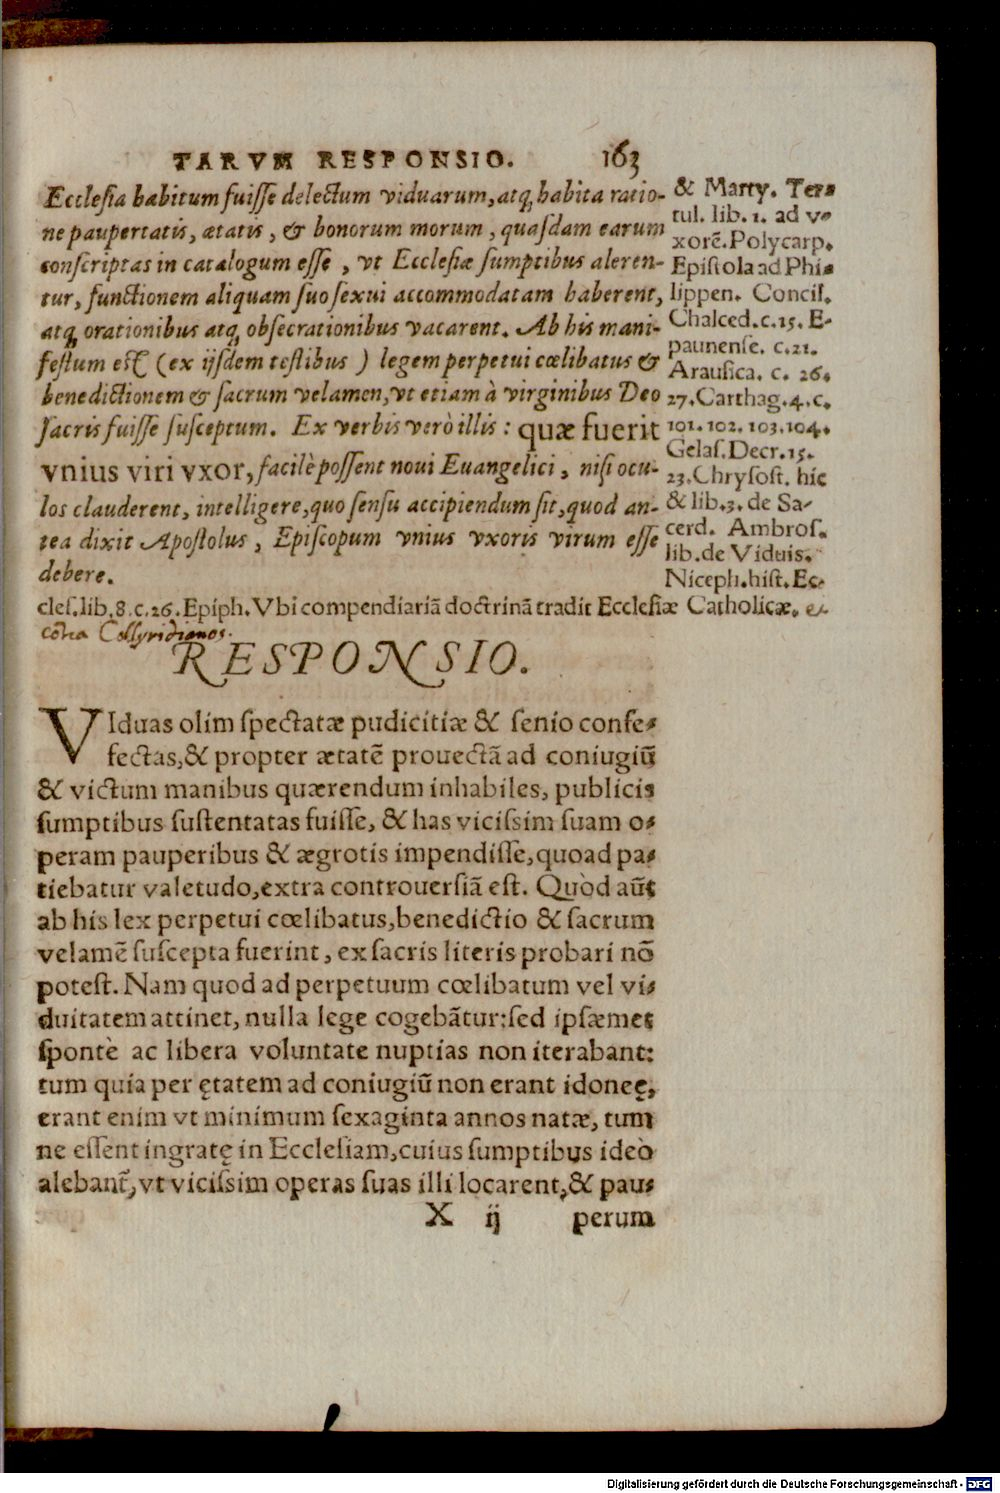 TARVM RESPONSIO. 163
Ecclesia habitum fuisse delectum viduarum, atq; habita ratio-
ne paupertatis, ætatis, & bonorum morum, quasdam earum
conscriptas in catalogum esse, vt Ecclesiæ sumptibus aleren-
tur, functionem aliquam suo sexui accommodatam haberent,
atq; orationibus atq; obsecrationibus vacarent. Ab his mani-
festum est (ex ijsdem testibus) legem perpetui cœlibatus &
benedictionem & sacrum velamen, vt etiam à virginibus Deo
sacris fuisse susceptum. Ex verbis verò illis: quæ fuerit
vnius viri vxor, facilè possent noui Euangelici, nisi ocu-
los clauderent, intelligere, quo sensu accipiendum sit, quod an-
tea dixit Apostolus, Episcopum vnius vxoris virum esse
debere.
& Marty. Ter-
tul. lib. 1. ad v-
xorē. Polycarp.
Epistola ad Phi-
lippen. Concil.
Chalced. c. 15. E-
paunense. c. 21.
Arausica. c. 26.
27. Carthag. 4. c.
101. 102. 103. 104.
Gelas. Decr. 15.
23. Chrysost. hic
& lib. 3. de Sa-
cerd. Ambros.
lib. de Viduis.
Niceph. hist. Ec-
cles. lib. 8. c. 26. Epiph. Vbi compendiariā doctrinā tradit Ecclesiæ Catholicæ. et
cōtra Collyridianos.
RESPONSIO.
VIduas olim spectatæ pudicitiæ & senio confe-
fectas, & propter ætatē prouectā ad coniugiū
& victum manibus quærendum inhabiles, publicis
sumptibus sustentatas fuisse, & has vicissim suam o-
peram pauperibus & ægrotis impendisse, quoad pa-
tiebatur valetudo, extra controuersiā est. Quòd aūt
ab his lex perpetui cœlibatus, benedictio & sacrum
velamē suscepta fuerint, ex sacris literis probari nō
potest. Nam quod ad perpetuum cœlibatum vel vi-
duitatem attinet, nulla lege cogebātur: sed ipsæmet
spontè ac libera voluntate nuptias non iterabant:
tum quia per ętatem ad coniugiū non erant idoneę,
erant enim vt minimum sexaginta annos natæ, tum
ne essent ingratę in Ecclesiam, cuius sumptibus ideò
alebant̃, vt vicissim operas suas illi locarent, & pau-
X ij perum
Digitalisierung gefördert durch die Deutsche Forschungsgemeinschaft - DFG